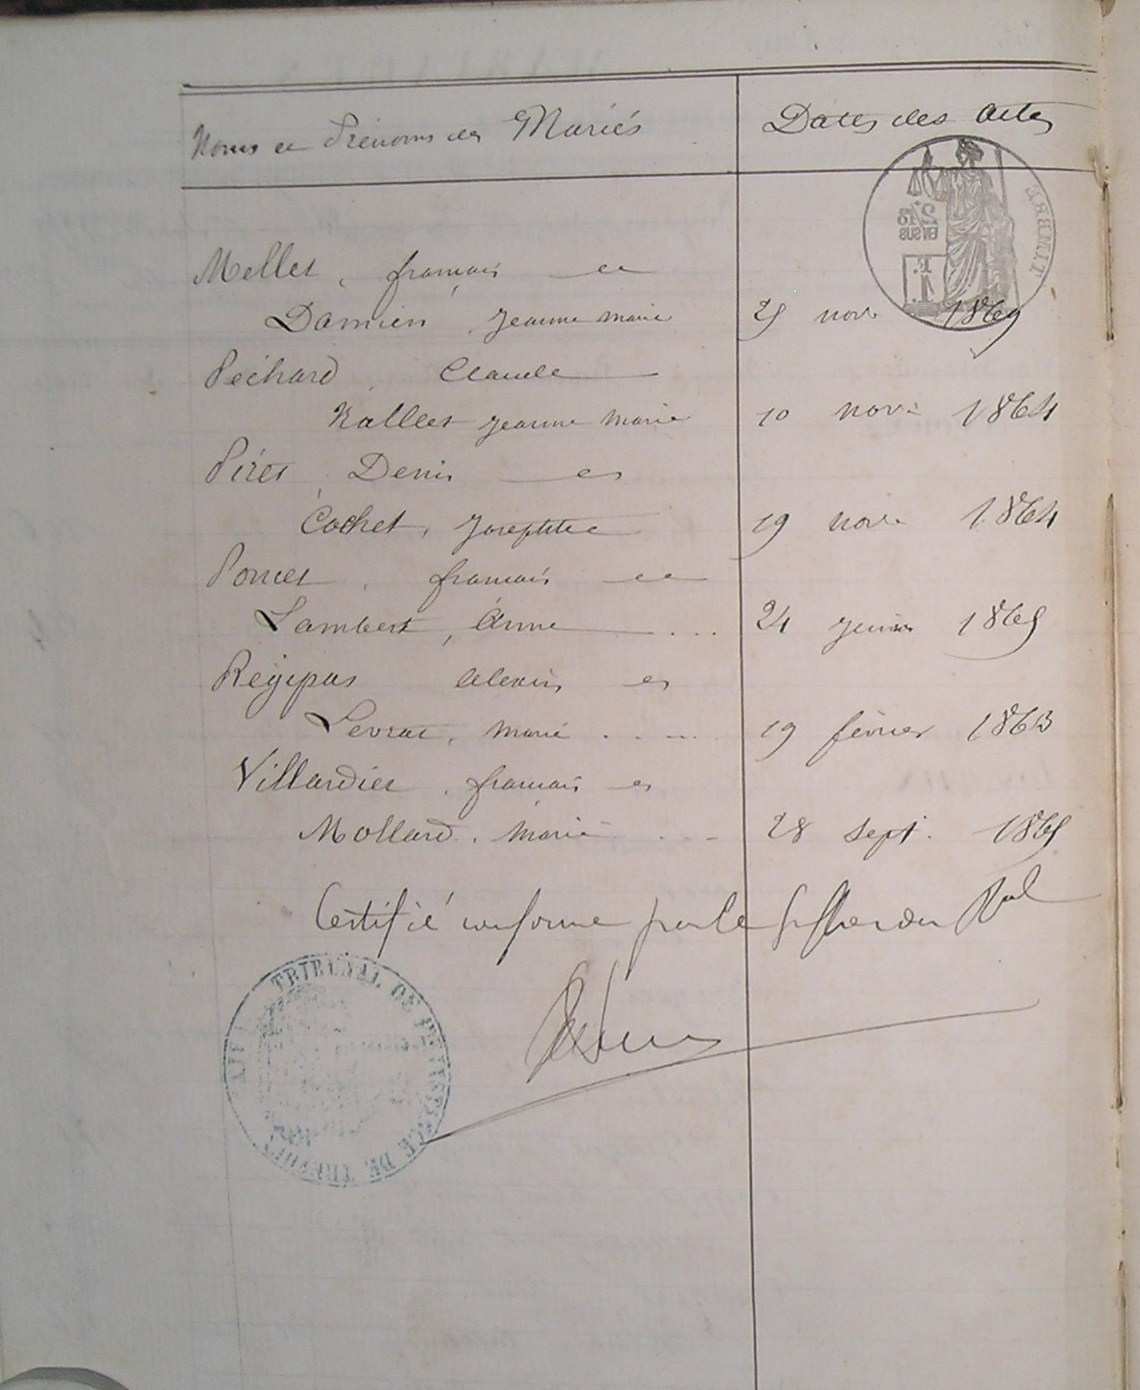 Noms et Prénoms des Mariés
Dates des Actes
TIMBRE
2/10 EN SUS
1 F.
Mellet, françois et
Damien, Jeanne marie 25 nov. 1869
Péchard, Claude
Vallet Jeanne Marie 10 nov. 1864
Piret, Denis et
Cochet, Josephte 19 nov. 1864
Poncet, françois et
Lambert, Anne 24 1865
Régipas Alexis et
Levrat, Marie 19 février 1863
Villardier, françois et
Mollard, Marie 28 sept. 1865
Certifié conforme par le Greffier du
TRIBUNAL DE 1ère INSTANCE DE TRÉVOUX